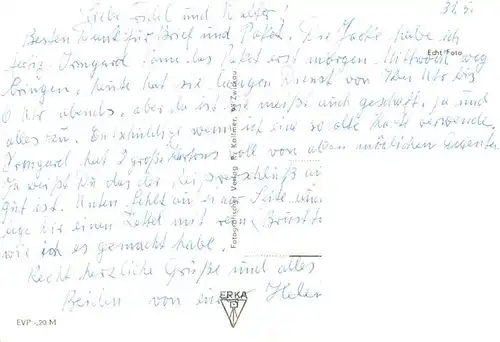 31.5.
Liebe und
Besten Dank für Brief und Paket. Die Jacke habe ich
fertig. Irmgard kann das Paket erst morgen Mittwoch weg
bringen, heute hat sie langen Dienst von Uhr bis
Uhr abends, aber da ist sie meist auch geschafft, ja und
alles zu. Entschuldige wenn ich eine so alte Karte verwende,
Irmgard hat 2 große Kartons voll von allen möglichen
Ja weißt Du das der Reißverschluß
gut ist. Unten fehlt an einer Seite
lege Dir einen Zettel mit rein
wie ich es gemacht habe.
Recht herzliche Grüße und alles
Beiden von
Echt Foto
Fotografischer Verlag R. Kallmer, Zwickau
ERKA
EVP -,20 M